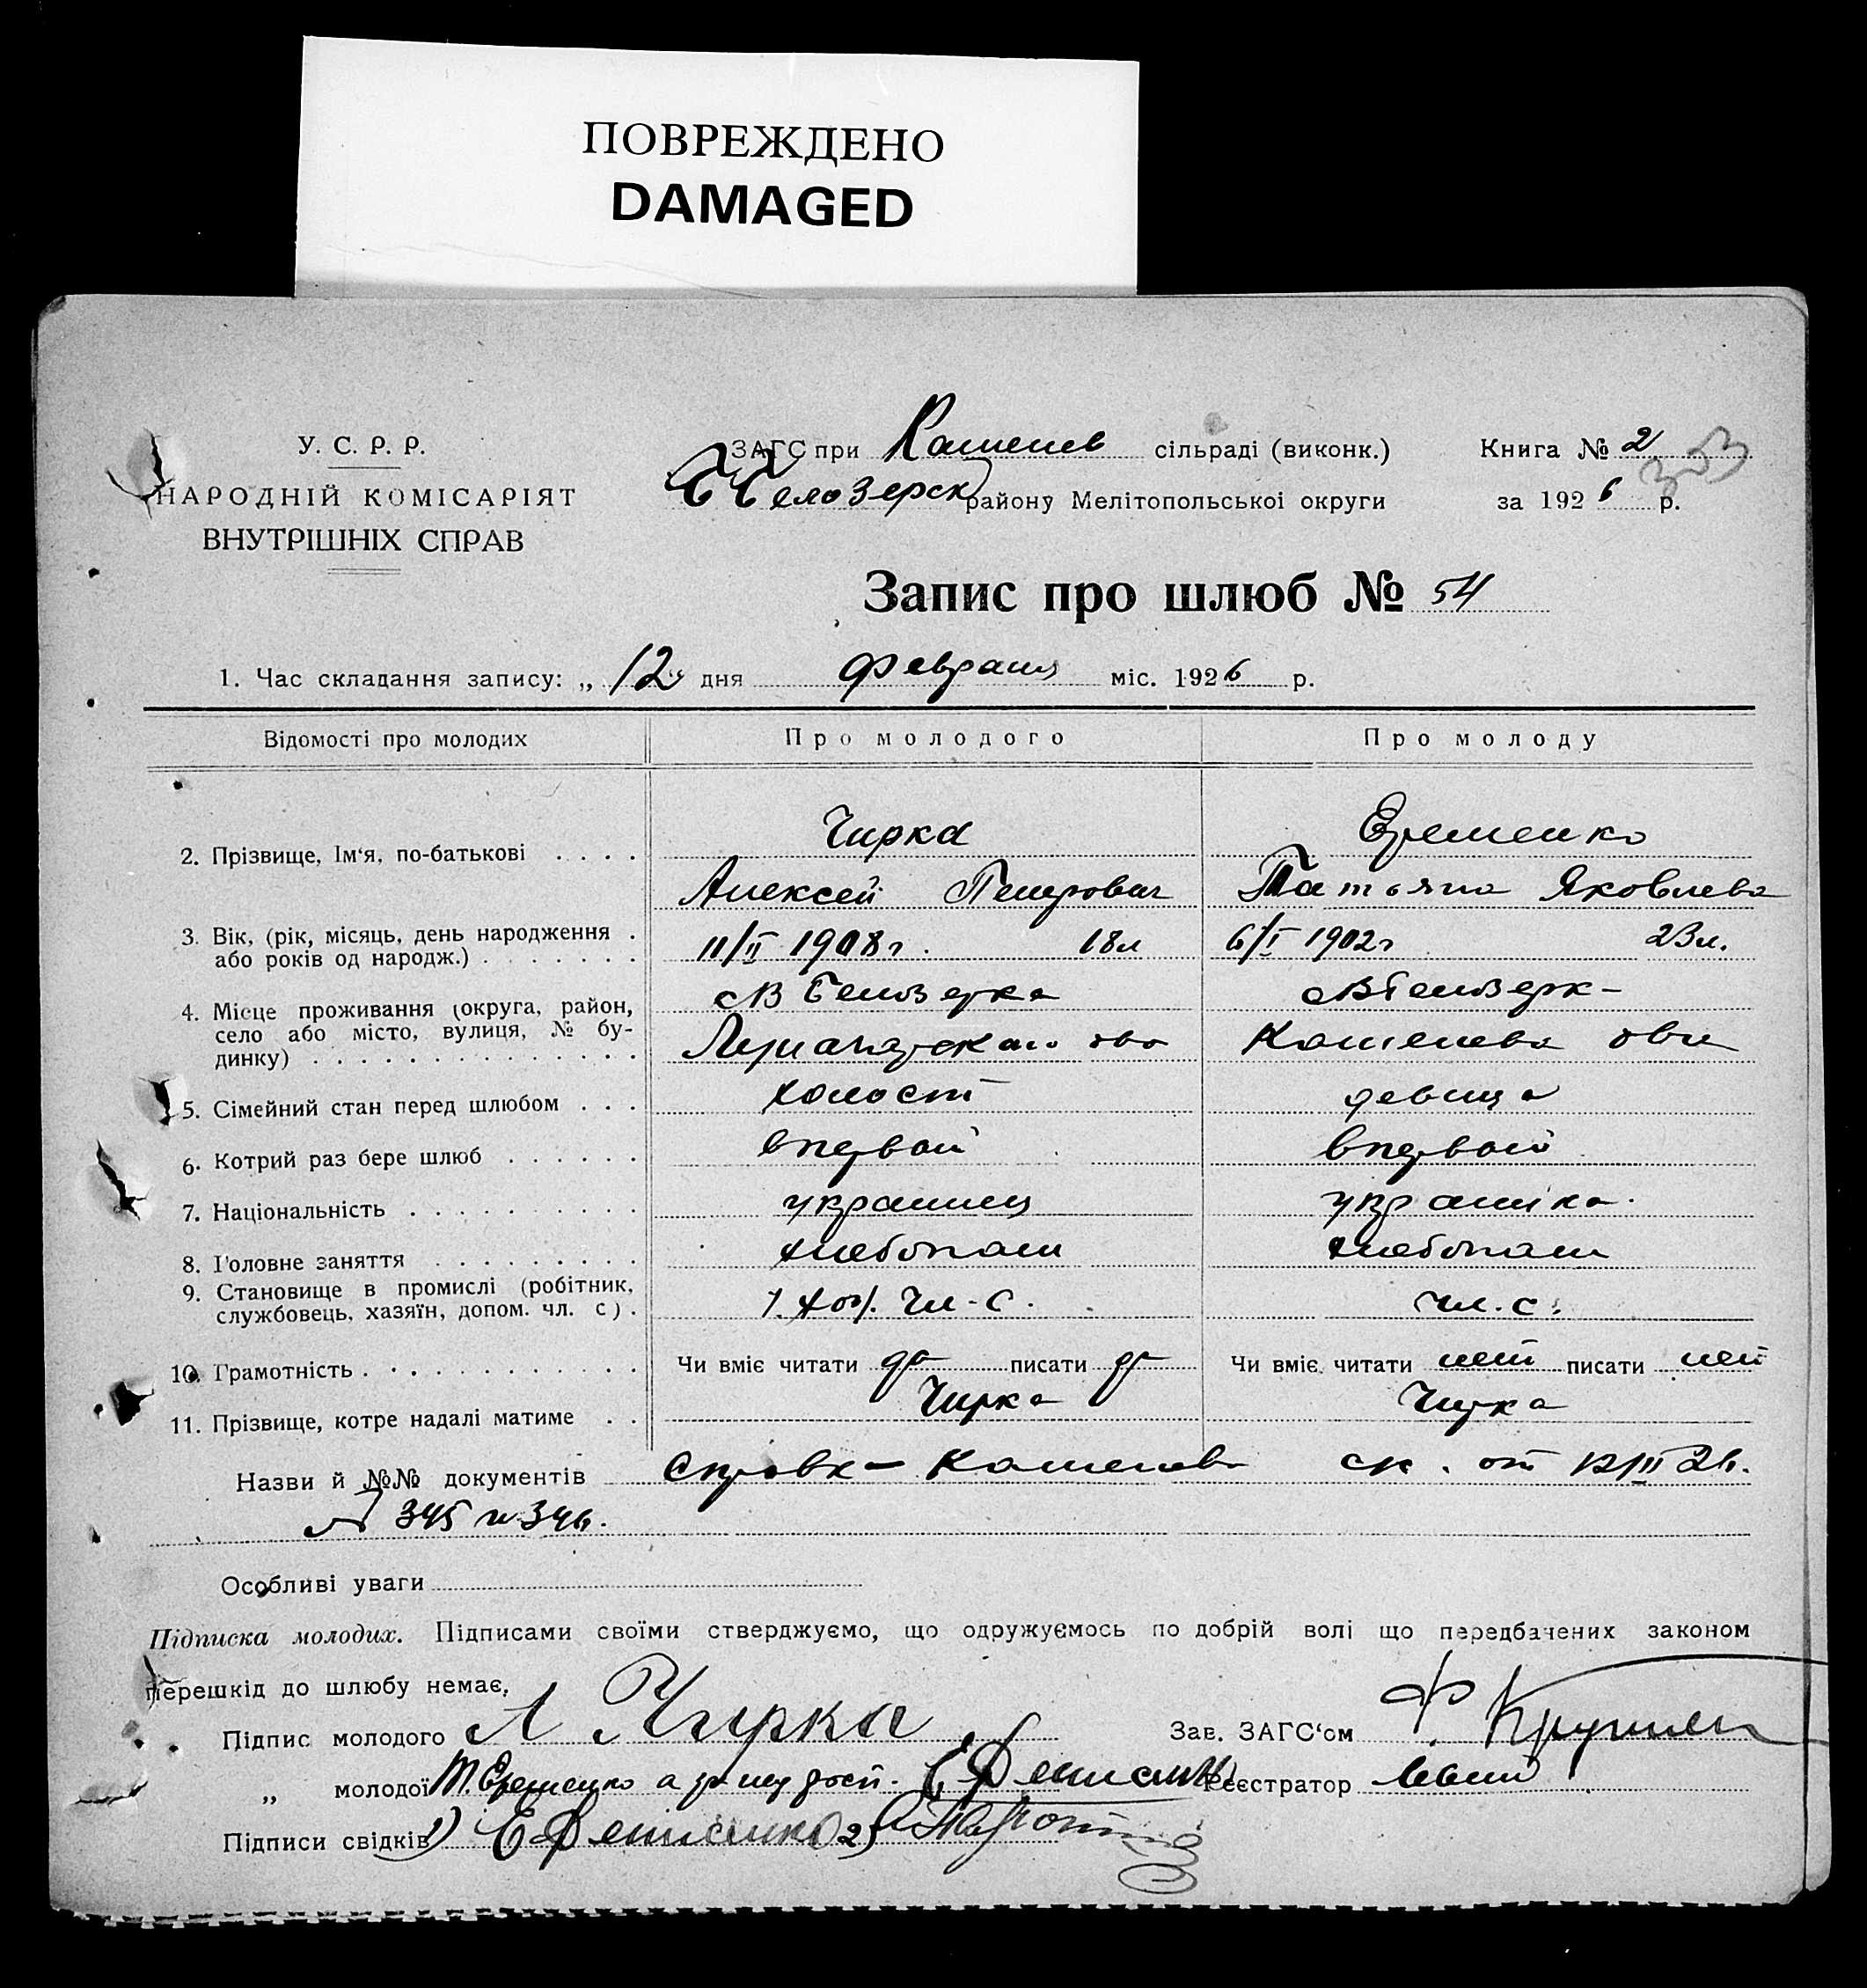 ПОВРЕЖДЕНО
DAMAGED
У. С. Р. Р.
НАРОДНІЙ КОМІСАРІЯТ
ВНУТРІШНІХ СПРАВ
ЗАГС при Каменев сільраді (виконк.)
Б Белозерск району Мелітопольської округи
Книга № 2
353
за 1926 р.
Запис про шлюб № 54
1. Час складання запису: „ 12 „ дня Февраля міс. 1926 р.
Відомості про молодих Про молодого Про молоду
2. Прізвище, Ім'я, по-батькові . . . . Чирка Еременко
Алексей Петрович Татьяна Яковлева
3. Вік, (рік, місяць, день народження .
або років од народж.) . . . . . . . 11/II 1908 г. 18 л 6/I 1902 г 23 л.
4. Місце проживання (округа, район, с В Белозерка с В Белозерк-
село або місто, вулиця, № бу-
динку) . . . . . . . . . . . . . . Каменева
5. Сімейний стан перед шлюбом . . . холост девица
6. Котрий раз бере шлюб . . . . . . впервой впервой
7. Національність . . . . . . . . . . украинец украинка
8. Головне заняття . . . . . . . . . хлебопаш хлебопаш
9. Становище в промислі (робітник,
службовець, хазяїн, допом. чл. с) . чл. с. чл. с.
10. Грамотність . . . . . . . . . . . Чи вміє читати да писати да Чи вміє читати нет писати нет
11. Прізвище, котре надалі матиме . . Чирка Чирка
Назви й №№ документів Справк- Каменев от 12/II 26.
№ 345 и 346.
Особливі уваги
Підписка молодих. Підписами своїми стверджуємо, що одружуємось по добрій волі що передбачених законом
перешкід до шлюбу немає.
Підпис молодого А Чирка Зав. ЗАГС'ом
„ молодої Т. Еременко а за негр Е Денисенко Реєстратор
Підписи свідків 1) Е Денисенко 2)